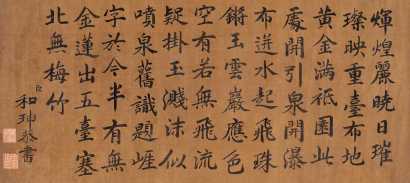 煇煌麗曉日璀
璨映重臺布地
黃金滿祗園此
處開引泉開瀑
布迸水起飛珠
鏘玉雲巖應色
空有若無飛流
疑掛玉濺沫似
噴泉舊識題崖
字於今半有無
金蓮出五臺塞
北無梅竹
臣和珅恭書